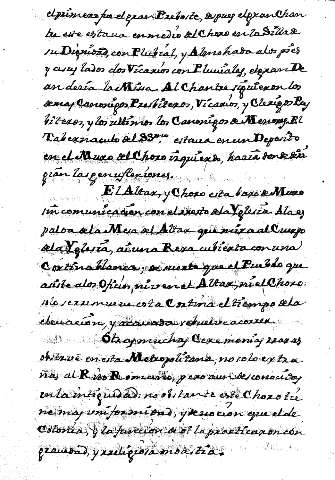 el primero fue el gran Preboste, despues el gran Chan
tre este estava en medio del Choro en la Silla de
su Dignidad, con Pluvial, y Almohada a los pies
y a sus lados dos Vicarios con Pluviales, el gran De
an decia la Missa. Al Chantre siguieron los
demas Canonigos Presbiteros, Vicarios, y Clerigos Pres
biteros, y los ultimos los Canonigos de Menores. El
Tabernaculo del SSmo estava en un Deposito
en el Muro del Choro izquierdo, hazia donde diri
gian las genuflexiones.
El Altar, y Choro esta baxo de Muro
sin comunicacion con el resto de la Yglesia. A la es
palda de la Mesa del Altar que mira al Cuerpo
de la Yglesia, ai una Rexa cubierta con una
Cortina blanca; de suerte que el Pueblo que
asiste a los Oficios, ni ven el Altar, ni el Choro
solo se remueve esta Cortina el tiempo de la
elevacion, y acavada se buelve a correr.
Otras muchas Ceremonias raras
observé en esta Metropolitana, no solo extra
ñas al Rito Romano, pero aun desconocidas
en la antiguedad: no obstante este Choro tie
ne mas uniformidad, y devocion que el de
Colonia, y la funcion de oi la practicaron con
gravedad, y religiosa modestia.